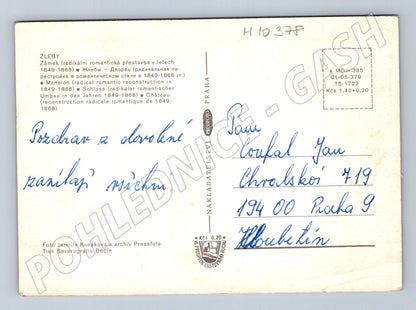 H 10 378
ŽLEBY
Zámek (radikální romantická přestavba v letech
1849-1868) • Жлебы — Дворец (радикальная пе-
рестройка в романтическом стиле в 1849-1868 гг.)
• Mansion (radical romantic reconstruction in
1849-1868) • Schloss (radikaler romantischer
Umbau in den Jahren 1849-1868) • Château
(reconstruction radicale romantique de 1849-
1868)
Pozdrav z dovolené
zanikají všichni
Foto Jarmila
a archiv Pressfoto
Tisk Severografia Děčín
NAKLADATELSTVÍ PRESSFOTO PRAHA
Kčs 0,20
01-05-379
15-1723
Kčs 1,40+0,20
Pan
Coufal Jan
Chvalská 719
194 00 Praha 9
Hloubětín
POHLEDNICE - GASH